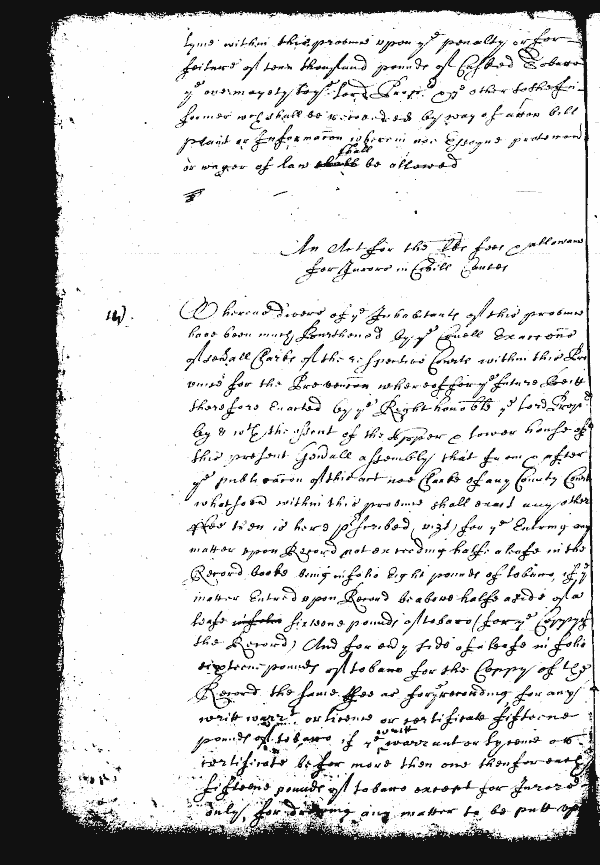 tyme within this province upon ye penalty or for
feiture of tenn thousand pounds of Casked Tobacco
ye one moyety to ye lord Propr. & ye other to the In
former wch shall be recovered by way of accon bill
plaint or Informacon wherein noe Essoyne proteccon
or wager of law shall be allowed
An Act for the fees allowance
for Jurors in Civill Causes
Whereas divers of ye Inhabitants of this province
have been much Burthened by ye
of severall Clarks of the respective Courts within this Pro
vince for the Prevencon whereof for ye future Be itt
therefore Enacted by ye Right honoble ye lord Propr
by & wth the assent of the Upper & lower house of
this present Generall assembly that from & after
ye publicacon of this act noe Clarke of any County Court
whatsoever within this province shall exact any other
ffee then is here pscribed, vizt, for ye Entring any
matter upon Record not exceeding halfe a leafe in the
Record booke being in folio Eight pounds of tobacco, if ye
matter Entred upon Record be above halfe a side of a
leafe sixteene pounds of tobacco for ye Coppy of
the Record) And for evy side of a leafe in folio
sixteene pounds of tobacco for the Coppy of the
Record the same ffee as for ye recording for any
writt warrt. or licence or certificate fifteene
pounds of tobacco if ye writt warrant or lycence or
certificate be for more then one then for each
fifteene pounds of tobacco except for Jurors
only, for drawing any matter to be putt up